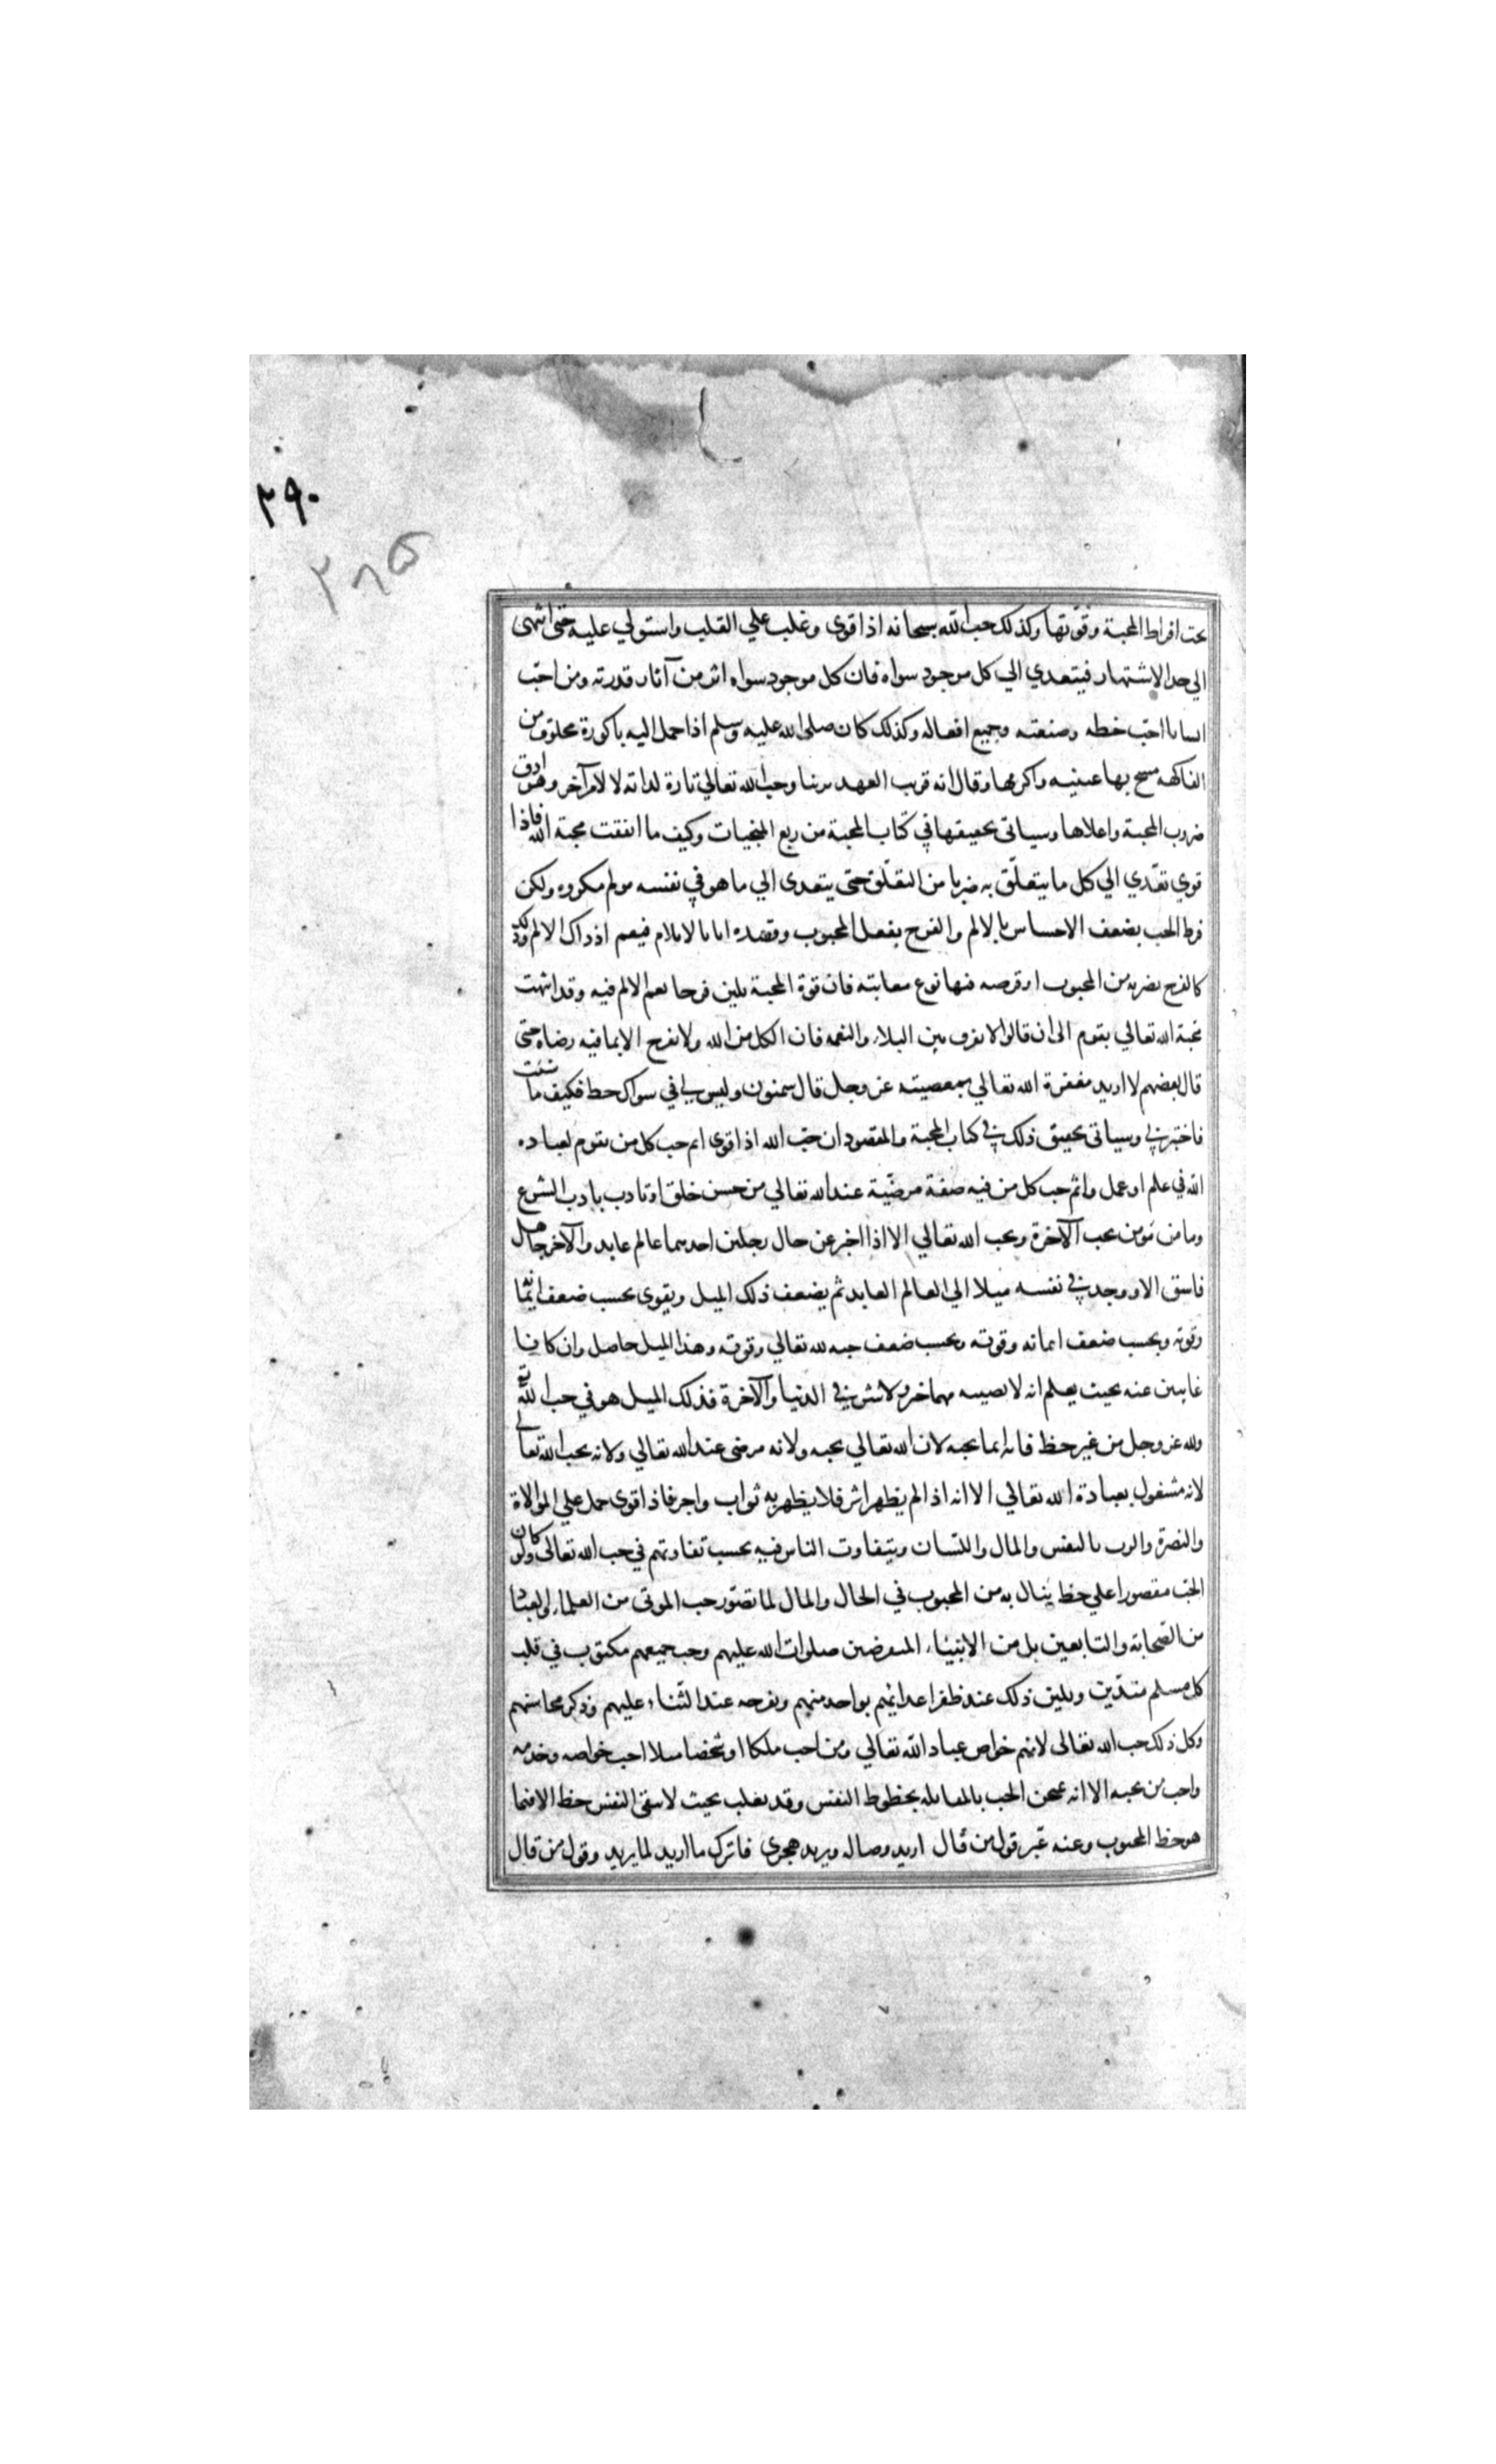 ٢٩٠
٢٨٥
بحت افراط المحبة وقوتها وكذلك حب الله سبحانه اذا قوى وغلب علي القلب واستولي عليه حتى انتهى
الي حد الاشتهار فيتعدي الي كل موجود سواه فان كل موجود سواه اثر من آثار قدرته ومن احب
انسانا احب خطه وصنعته وجميع افعاله وكذلك كان صلى الله عليه وسلم اذا حمل اليه باكورة من
الفاكهه مسح بها عينيه واكرمها وقال انه قريب العهد بربنا وحب الله تعالي تارة لذاته لا لامر آخر وهو ادق
ضروب المحبة واعلاها وسياتى تحقيقها في كتاب المحبة من ربع المنجيات وكيف ما اتفقت محبة الله فاذا
قوي تعدي الي كل ما يتعلق به ضربا من التعلق حتى يتعدى الي ما هو في نفسه مولم مكروه ولكن
فرط الحب يضعف الاحساس بالالم والفرح بفعل المحبوب وقصده اياه بالايلام فيعم ادراك الالم وذلك
كالفرح بضربه من المحبوب او قرصه فيها نوع معاتبته فان قوة المحبة يلين فرحا نعم الالم فيه وقد انتهت
محبة الله تعالي بقوم الى ان قالوا لا نفرق بين البلاء والنعمه فان الكل من الله ولا نفرح الا بما فيه رضاه حتى
قال بعضهم لا اريد مغفرة الله تعالي بمعصيته عز وجل قال سمنون وليس لي في سواك حظ فكيف ما شئت
فاختبرني وسياتى تحقيق ذلك في كتاب المحبة والمقصود ان حب الله اذا قوى اثم حب كل من يقوم لعباده
الله في علم او عمل واثم حب كل من فيه صفة مرضية عند الله تعالي من حسن خلق او تادب بادب الشرع
وما من مؤمن محب الآخرة ومحب الله تعالي الا اذا اخبر عن حال رجلين احدهما عالم عابد والآخر جاهل
فاسق الا ووجد في نفسه ميلا الي العالم العابد ثم يضعف ذلك الميل ويقوى بحسب ضعف ايمانه
وقوته وبحسب ضعف ايمانه وقوته وبحسب ضعف حبه لله تعالي وقوته وهذا الميل حاصل وان كانا
غايبين عنه بحيث يعلم انه لا يصيبه منهما خير ولا شر في الدنيا والآخرة فذلك الميل هو في حب الله
ولله عز وجل من غير حظ فانه انما يحبه لان الله تعالي يحبه ولانه مرضى عند الله تعالي ولانه يحب الله تعالي
لانه مشغول بعبادة الله تعالي الا انه اذا لم يظهر اثر فلا يظهر به ثواب واجر فاذا قوى حمل علي الموالاة
والنصرة والذب بالنفس والمال واللسان ويتفاوت الناس فيه بحسب تفاوتهم في حب الله تعالى ولو كان
الحب مقصورا علي حظ ينال به من المحبوب في الحال والمال لما تصور حب الموتى من العلماء والعباد
من الصحابة والتابعين بل من الانبياء المنقرضين صلوات الله عليهم وحب جميعهم مكتوب في قلب
كل مسلم متدين ويلين ذلك عند ظفر اعدائهم بواحد منهم وبفرحه عند الثناء عليهم وذكر محاسنهم
وكل ذلك حب الله تعالى لانهم خواص عباد الله تعالي ومن احب ملكا او شخصا مثلا احب خواصه وخدمه
واحب من يحبه الا انه يمتحن الحب بالمقابله بحظوظ النفس وقد يغلب بحيث لا يبقى النفس حظ الا فيما
هو حظ المحبوب وعنه عبر قول من قال اريد وصاله ويريد هجرى فاترك ما اريد لما يريد وقول من قال